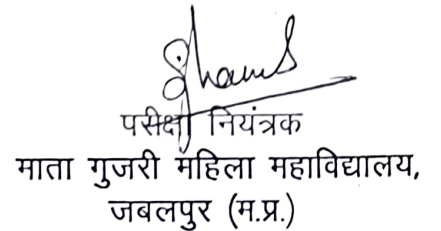 परीक्षा नियंत्रक
माता गुजरी महिला महाविद्यालय,
जबलपुर (म.प्र.)